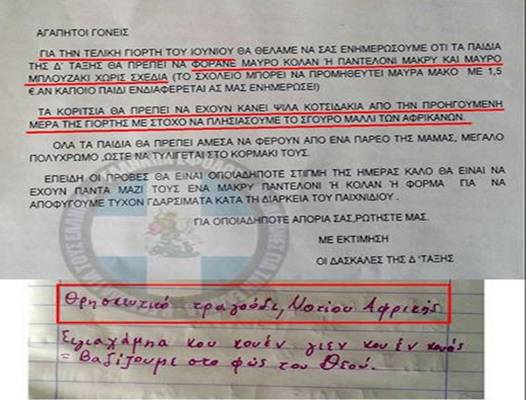 ΑΓΑΠΗΤΟΙ ΓΟΝΕΙΣ
ΓΙΑ ΤΗΝ ΤΕΛΙΚΗ ΓΙΟΡΤΗ ΤΟΥ ΙΟΥΝΙΟΥ ΘΑ ΘΕΛΑΜΕ ΝΑ ΣΑΣ ΕΝΗΜΕΡΩΣΟΥΜΕ ΟΤΙ ΤΑ ΠΑΙΔΙΑ
ΤΗΣ Δ΄ ΤΑΞΗΣ ΘΑ ΠΡΕΠΕΙ ΝΑ ΦΟΡΑΝΕ ΜΑΥΡΟ ΚΟΛΑΝ Ή ΠΑΝΤΕΛΟΝΙ ΜΑΚΡΥ ΚΑΙ ΜΑΥΡΟ
ΜΠΛΟΥΖΑΚΙ ΧΩΡΙΣ ΣΧΕΔΙΑ (ΤΟ ΣΧΟΛΕΙΟ ΜΠΟΡΕΙ ΝΑ ΠΡΟΜΗΘΕΥΤΕΙ ΜΑΥΡΑ ΜΑΚΟ ΜΕ 1,5
€.ΑΝ ΚΑΠΟΙΟ ΠΑΙΔΙ ΕΝΔΙΑΦΕΡΕΤΑΙ ΑΣ ΜΑΣ ΕΝΗΜΕΡΩΣΕΙ)
ΤΑ ΚΟΡΙΤΣΙΑ ΘΑ ΠΡΕΠΕΙ ΝΑ ΕΧΟΥΝ ΚΑΝΕΙ ΨΙΛΑ ΚΟΤΣΙΔΑΚΙΑ ΑΠΟ ΤΗΝ ΠΡΟΗΓΟΥΜΕΝΗ
ΜΕΡΑ ΤΗΣ ΓΙΟΡΤΗΣ ΜΕ ΣΤΟΧΟ ΝΑ ΠΛΗΣΙΑΣΟΥΜΕ ΤΟ ΣΓΟΥΡΟ ΜΑΛΛΙ ΤΩΝ ΑΦΡΙΚΑΝΩΝ.
ΟΛΑ ΤΑ ΠΑΙΔΙΑ ΘΑ ΠΡΕΠΕΙ ΑΜΕΣΑ ΝΑ ΦΕΡΟΥΝ ΑΠΟ ΕΝΑ ΠΑΡΕΟ ΤΗΣ ΜΑΜΑΣ, ΜΕΓΑΛΟ
ΠΟΛΥΧΡΩΜΟ ,ΩΣΤΕ ΝΑ ΤΥΛΙΓΕΤΑΙ ΣΤΟ ΚΟΡΜΑΚΙ ΤΟΥΣ.
ΕΠΕΙΔΗ ΟΙ ΠΡΟΒΕΣ ΘΑ ΕΙΝΑΙ ΟΠΟΙΑΔΗΠΟΤΕ ΣΤΙΓΜΗ ΤΗΣ ΗΜΕΡΑΣ ΚΑΛΟ ΘΑ ΕΙΝΑΙ ΝΑ
ΕΧΟΥΝ ΠΑΝΤΑ ΜΑΖΙ ΤΟΥΣ ΕΝΑ ΜΑΚΡΥ ΠΑΝΤΕΛΟΝΙ Ή ΚΟΛΑΝ Ή ΦΟΡΜΑ ΓΙΑ ΝΑ
ΑΠΟΦΥΓΟΥΜΕ ΤΥΧΟΝ ΓΔΑΡΣΙΜΑΤΑ ΚΑΤΑ ΤΗ ΔΙΑΡΚΕΙΑ ΤΟΥ ΠΑΙΧΝΙΔΙΟΥ .
ΓΙΑ ΟΠΟΙΑΔΗΠΟΤΕ ΑΠΟΡΙΑ ΣΑΣ,ΡΩΤΗΣΤΕ ΜΑΣ.
ΜΕ ΕΚΤΙΜΗΣΗ
ΟΙ ΔΑΣΚΑΛΕΣ ΤΗΣ Δ ΄ΤΑΞΗΣ
Θρησκευτικό τραγούδι, Νοτίου Αφρικής
Σιγιαχάμπα κου κουέν γιεν κου έν κουός
= Βαδίζουμε στο φώς του Θεού.